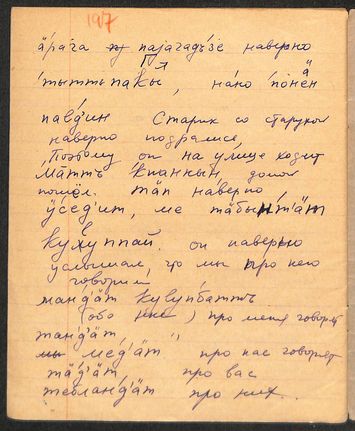 197
а́ра́га паjагадъ́зе наверно
тыттьпакы, нано по́не́н
павд'ин Старик со старухой
наверно подрались,
Поэтому он на улице ходит
ма̄ттъ кванкын, домой
пошёл. тäп наверно,
ӱ́сед'ит, ме тäбын'т'äт
кулуппай. он наверно
услышал, что мы про него
говорим
манд'äт кулупба̄ттъ
(обо мне) про меня говорят
танд'äт "
мед'äт про нас говорят
тäд'äт про вас
тебланд'äт про них.